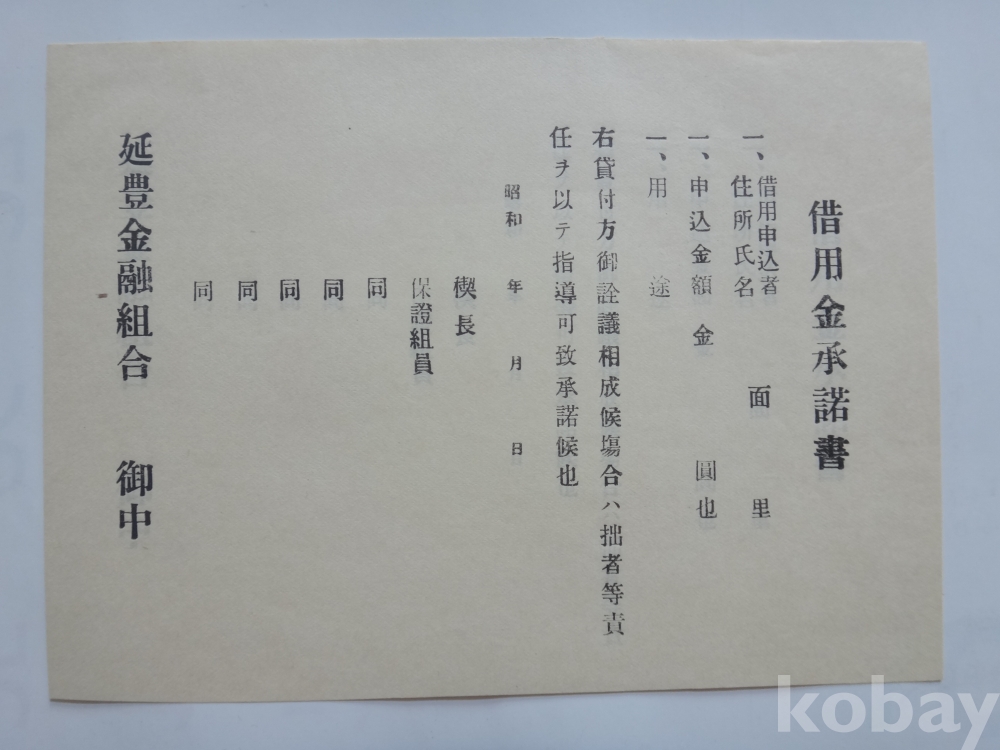 借用金承諾書
一、借用申込者住所氏名 面 里
一、申込金額 金 圓也
一、用途
右貸付方御詮議相成候塲合ハ拙者等責
任ヲ以テ指導可致承諾候也
昭和 年 月 日
楔長
保證組員
同
同
同
同
同
延豊金融組合 御中
kobay